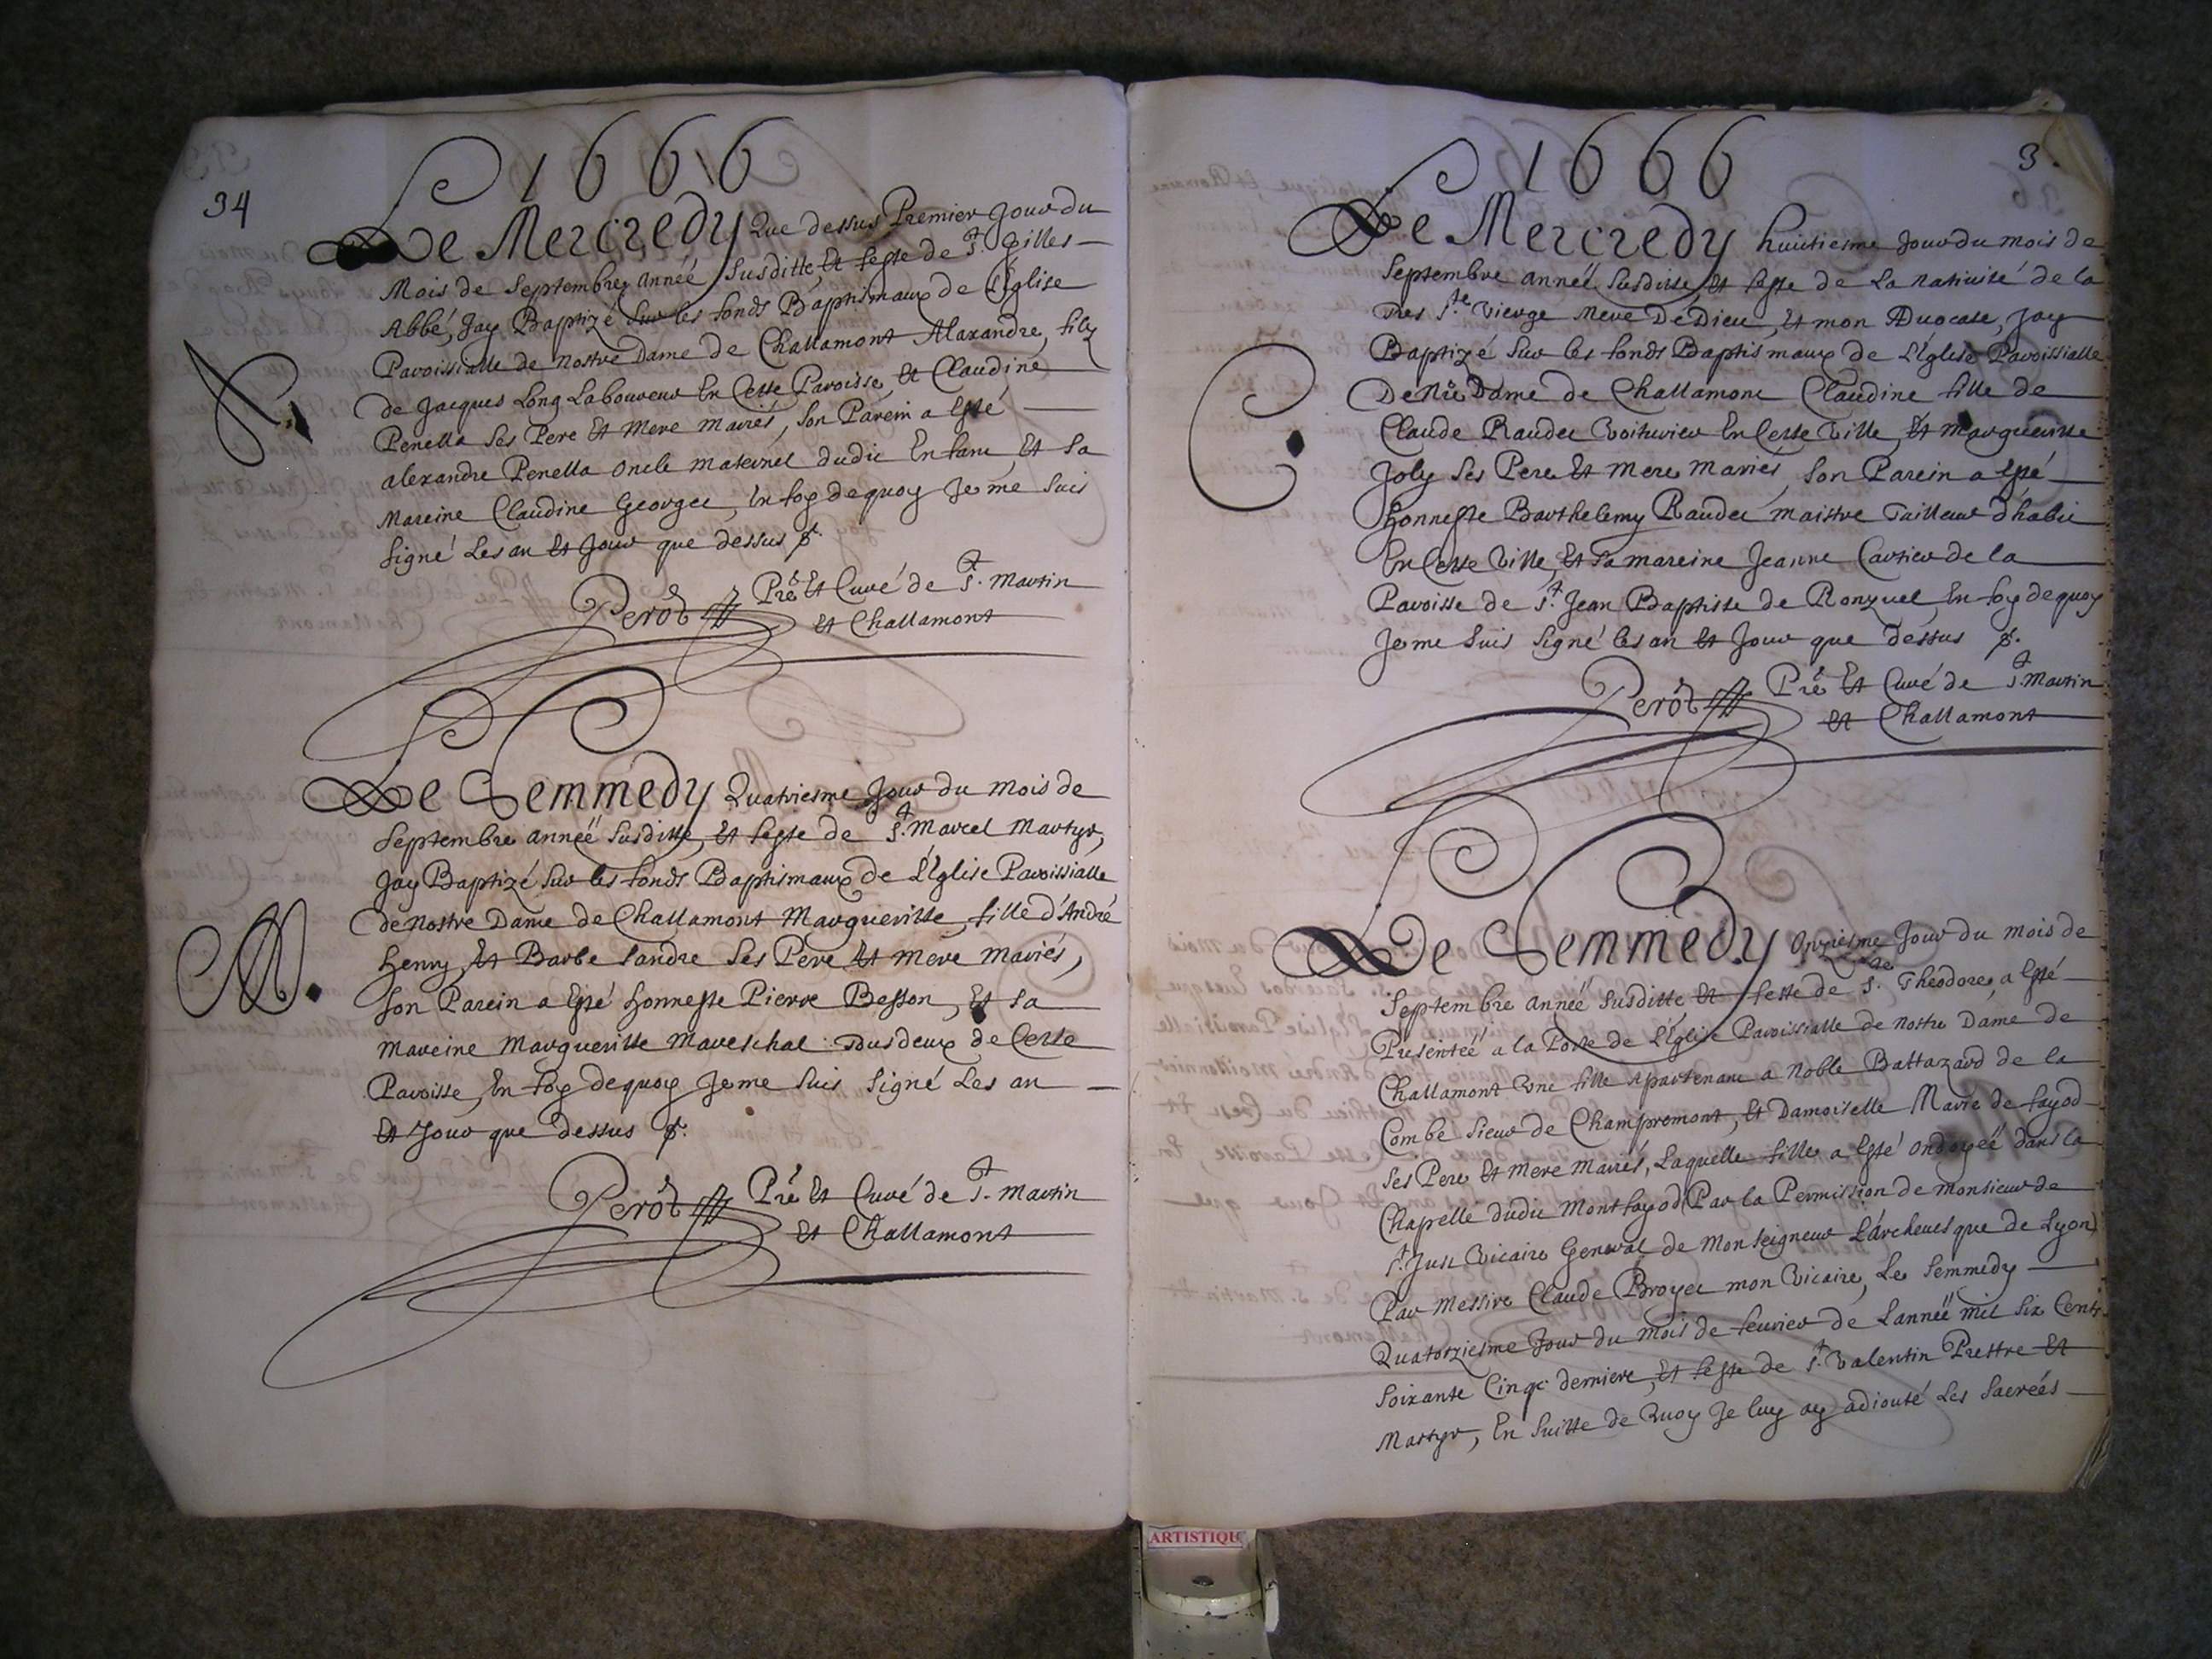 34
1666
De Mercredy que dessus Premier Jour du
Mois de Septembre année susditte, Et feste de St. Gilles
Abbé, Jay Baptizé sur les fonds Baptismaux de L'Eglise
Paroissialle de Nostre Dame de Challamont Alaxandre, filz
de Jacques Long Laboureur En Cette Paroisse, Et Claudine
Penella ses Pere Et Mere mariés, son Parein a Esté
alexandre Penella oncle maternel dudit Enfant, Et sa
Mareine Claudine Georget, En foy dequoy Je me suis
signé Les an Et Jour que dessus
A.
Perôt Prê. Et Curé de St. Martin
Et Challamont
De Semmedy Quatriesme Jour du mois de
Septembre année susditte, Et feste de St. Marcel Martyr,
Jay Baptizé sur les fonds Baptismaux de L'Eglise Paroissialle
de Nostre Dame de Challamont Margueritte, fille d'André
Henry, Et Barbe Landre ses Pere Et mere mariés,
son Parein a Esté honneste Pierre Besson, Et sa
Mareine Margueritte Mareschal Tous deux de Cette
Paroisse, En foy dequoy Je me suis signé Les an
Et Jour que dessus
M.
Perôt Prê. Et Curé de St. Martin
Et Challamont
3
1666
De Mercredy huictiesme Jour du mois de
Septembre année susditte, Et feste de La Nativité de la
Tres Ste. Vierge Mere De Dieu, Et mon Advocate, Jay
Baptizé sur les fonds Baptismaux de L'Eglise Paroissialle
De Nrê Dame de Challamont Claudine fille de
Claude Raudet Voiturier En Cette Ville, Et Margueritte
Joly ses Pere Et Mere mariés, son Parein a Esté
honneste Barthelemy Raudet maistre Tailleur d'habit
En Cette Ville, Et sa mareine Jeanne Cartier de la
Paroisse de St. Jean Baptiste de Ronzuel, En foy dequoy
Je me suis signé les an Et Jour que dessus
C.
Perôt Prê Et Curé de St. Martin
Et Challamont
De Semmedy Onziesme Jour du mois de
Septembre année susditte Et feste de Ste. Theodore, a Esté
Presentée a la Porte de L'Eglise Paroissialle de Nostre Dame de
Challamont Une fille apartenant a Noble Baltazard de la
Combe sieur de Champremont, Et Damoiselle Marie de fayod
ses Pere Et Mere mariés, Laquelle fille a Esté ondoyée dans la
Chapelle dudit Montfayod (Par la Permission de monsieur de
St. Just Vicaire General de Monseigneur L'archevesque de Lyon)
Par Messire Claude Broyet mon Vicaire, Le semmedy
Quatorziesme Jour du mois de fevrier de L'année mil six Cents
soixante Cinqe derniere, Et feste de St. Valentin Prestre Et
Martyr, En suitte de Quoy Je luy ay adiouté Les sacrées
ARTISTIQU